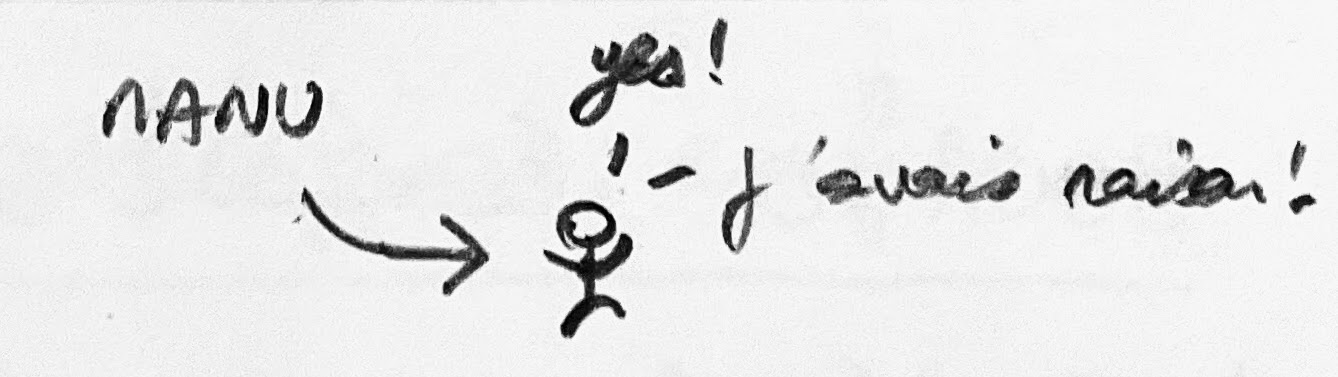 MANU
yes!
J'avais raison!